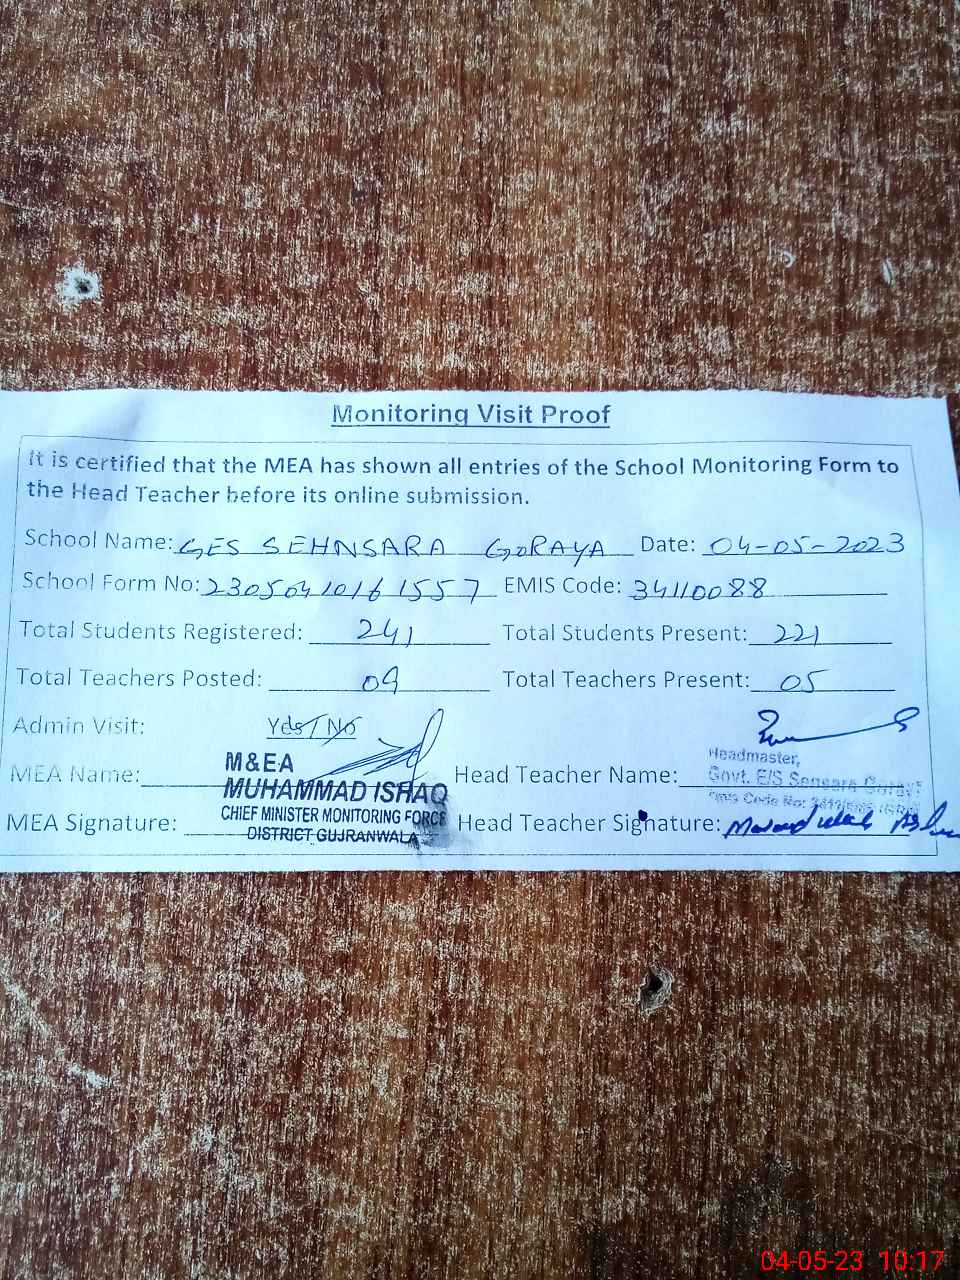 Monitoring Visit Proof
It is certified that the MEA has shown all entries of the School Monitoring Form to
the Head Teacher before its online submission.
School Name: GES SEHNSARA GORAYA Date: 04-05-2023
School Form No: 2305041016 1557 EMIS Code: 34110088
Total Students Registered: 241 Total Students Present: 221
Total Teachers Posted: 09 Total Teachers Present: 05
Admin Visit: Yes/No
M&EA Headmaster,
MEA Name: MUHAMMAD ISHAQ Head Teacher Name: Govt. E/S Sensara Goraya
CHIEF MINISTER MONITORING FORCE Emis Code No:
MEA Signature: DISTRICT GUJRANWALA Head Teacher Signature:
04-05-23 10:17